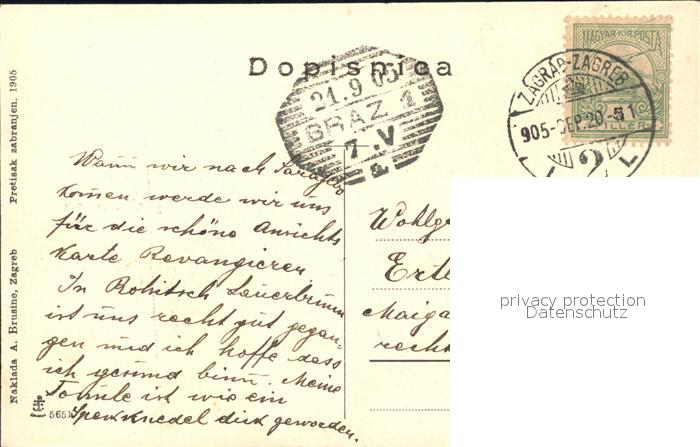 Dopisnica
MAGYAR KIR. POSTA
ZÁGRÁB-ZAGREB
905-SEP.20-
2
FILLÉR
21.9 05
GRAZ 1
7.V
Wann wir nach Sarajewo
komen werde wir uns
für die schöne Ansichts
Karte Revangieren
In Rohitsch Sauerbrunn
ist uns recht gut gegan-
gen und ich hoffe dass
ich gesund binn. Meine
Tonerle ist wie ein
Speckknedel dick geworden.
Wohlg
Ertl
Maiga
rechts
privacy protection
Datenschutz
Naklada A. Brusine, Zagreb Pretisak zabranjen. 1905
5651